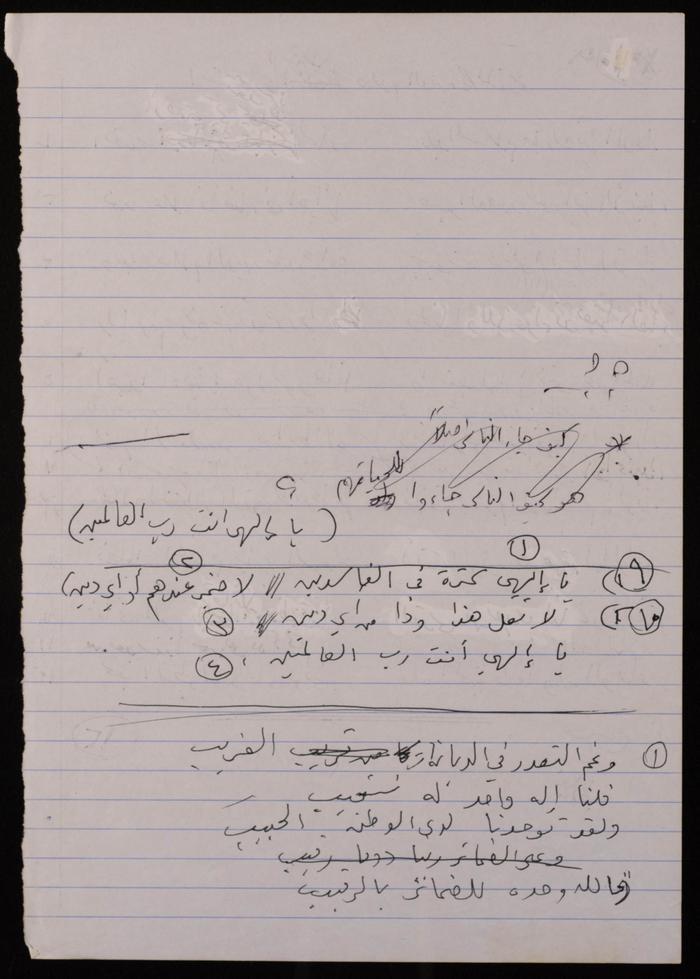 كيف جاء الناس أصلاً
هو كيف الناس جاءوا للحياة
؟
(يا إلهي انت رب العالمين)
١٩) يا إلهي كثرة في الفاسدين ١ // لا ضمير عندهم أو اي دين) ٢
لا تقل هذا وذا من اي دين // ٣
يا إلهي أنت رب العالمين . ٤
١ ورغم التعدد في الديانة من قريب الغريب
فلنا إله واحد له نستجيب
ولقد توحدنا لدى الوطن الحبيب
وعلى الضمائر ربنا دوما رقيب
فالله وحده للضمائر بالرقيب